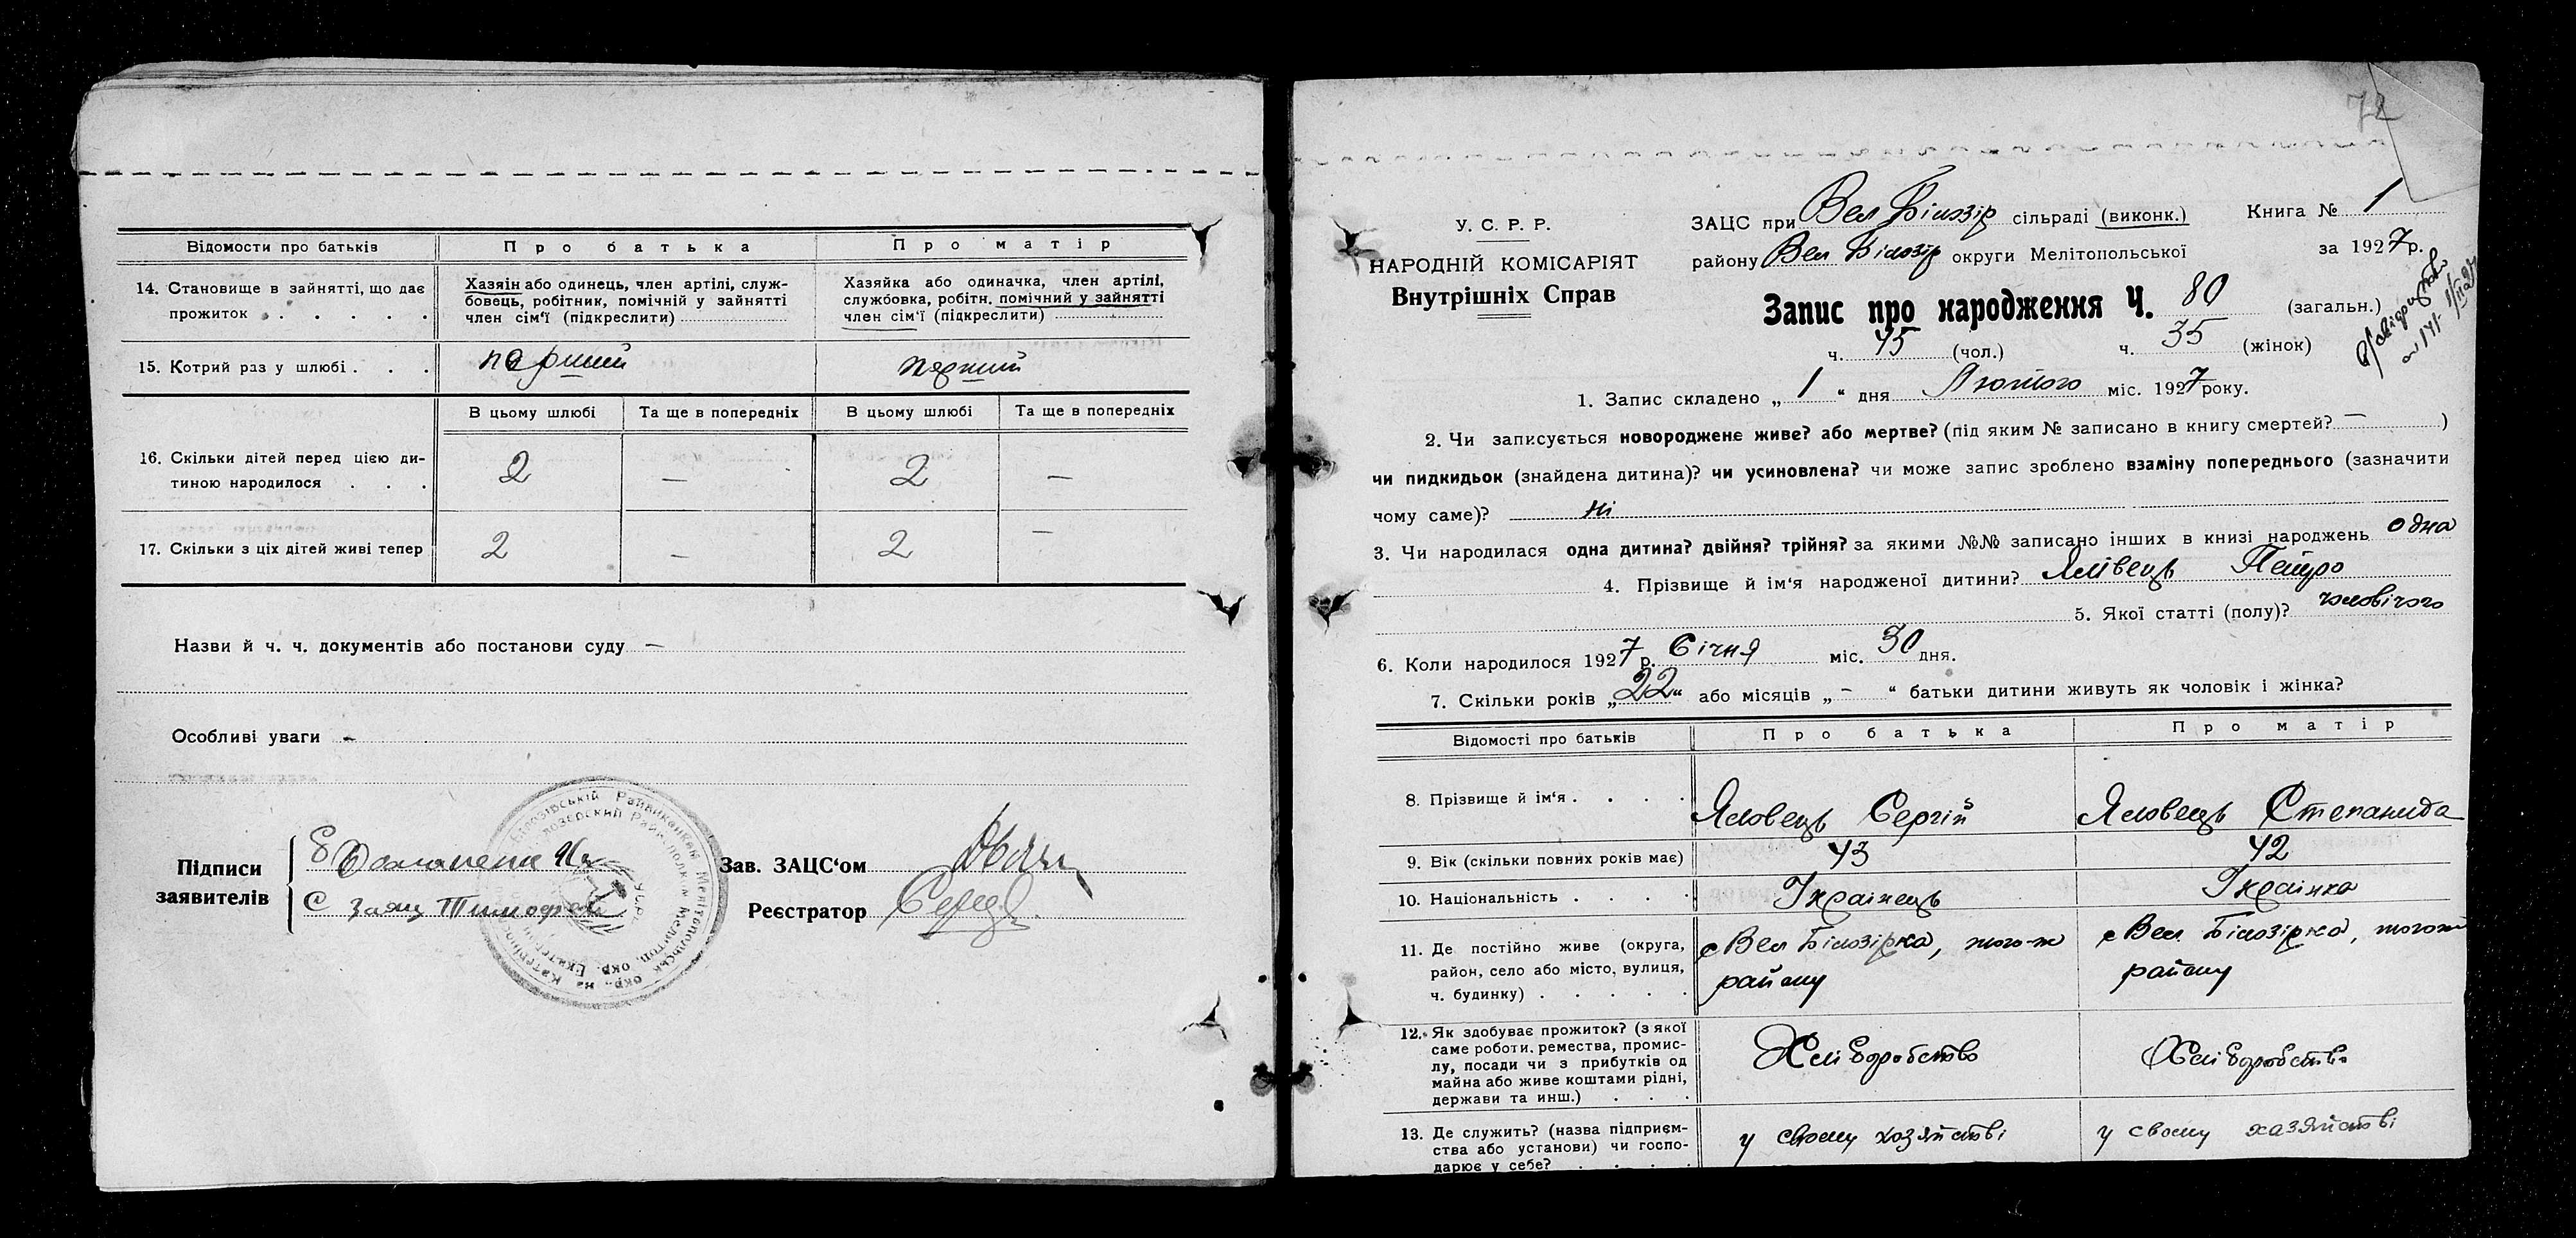 Відомости про батьків
Про батька
Про матір
14. Становище в зайнятті, що дає прожиток . . . . .
Хазяін або одинець, член артілі, служ-
бовець, робітник, помічній у зайнятті
член сім'ї (підкреслити)
Хазяйка або одиначка, член артілі,
службовка, робітн. помічний у зайнятті
член сім'ї (підкреслити)
15. Котрий раз у шлюбі . . .
перший
перший
В цьому шлюбі
Та ще в попередніх
В цьому шлюбі
Та ще в попередніх
16. Скільки дітей перед цією ди-
тиною народилося . . .
2
—
2
—
17. Скільки з ціх дітей живі тепер
2
—
2
—
Назви й ч. ч. документів або постанови суду —
Особливі уваги —
Підписи
заявителів
С Заяц Тимофей
Зав. ЗАЦС'ом
Реєстратор
72
У. С. Р. Р.
НАРОДНІЙ КОМІСАРІЯТ
Внутрішніх Справ
ЗАЦС при Вел Білозір сільраді (виконк.)
Книга № 1
району Вел Білозір округи Мелітопольської
за 1927 р.
Запис про народження Ч. 80 (загальн.)
ч. 45 (чол.) ч. 35 (жінок)
1. Запис складено „ 1 “ дня Лютого міс. 1927 року.
2. Чи записується новороджене живе? або мертве? (під яким № записано в книгу смертей? — )
чи пидкидьок (знайдена дитина)? чи усиновлена? чи може запис зроблено взаміну попереднього (зазначити
чому саме)? ні
3. Чи народилася одна дитина? двійня? трійня? за якими №№ записано інших в книзі народжень одна
4. Прізвище й ім'я народженої дитини? Ялівець Петро
5. Якої статті (полу)? чоловічого
6. Коли народилося 1927 р. Січня міс. 30 дня.
7. Скільки років „ 22 “ або місяців „ — “ батьки дитини живуть як чоловік і жінка?
Відомості про батьків
Про батька
Про матір
8. Прізвище й ім'я . . . .
Яловець Сергій
Яловець Степанида
9. Вік (скільки повних років має)
43
42
10. Національність . . . .
Україкець
Українка
11. Де постійно живе (округа,
район, село або місто, вулиця,
ч. будинку) . . . . .
с Вел Білозірка, того-ж
району
с Вел Білозірка, того ж
району
12. Як здобуває прожиток? (з якої
саме роботи. ремества, промис-
лу, посади чи з прибутків од
майна або живе коштами рідні,
держави та инш.) . . .
Хліборобство
Хліборобство
13. Де служить? (назва підприєм-
ства або установи) чи госпо-
дарює у себе? . . . .
у своєму хозяйстві
у своєму хазяйстві